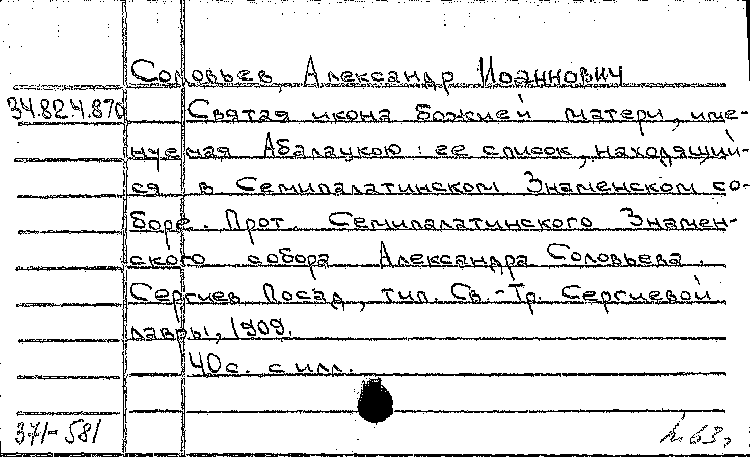 Соловьев, Александр Иоаннович
34.82.4.870 Святая икона божией матери, име-
нуемая Абалацкою: ее список, находящий-
ся в Семипалатинском Знаменском со-
боре. Прот. Семипалатинского Знамен-
ского собора Александра Соловьева.
Сергиев Посад, тип. Св.-Тр. Сергиевой
лавры, 1909.
40с. с илл.
371-581